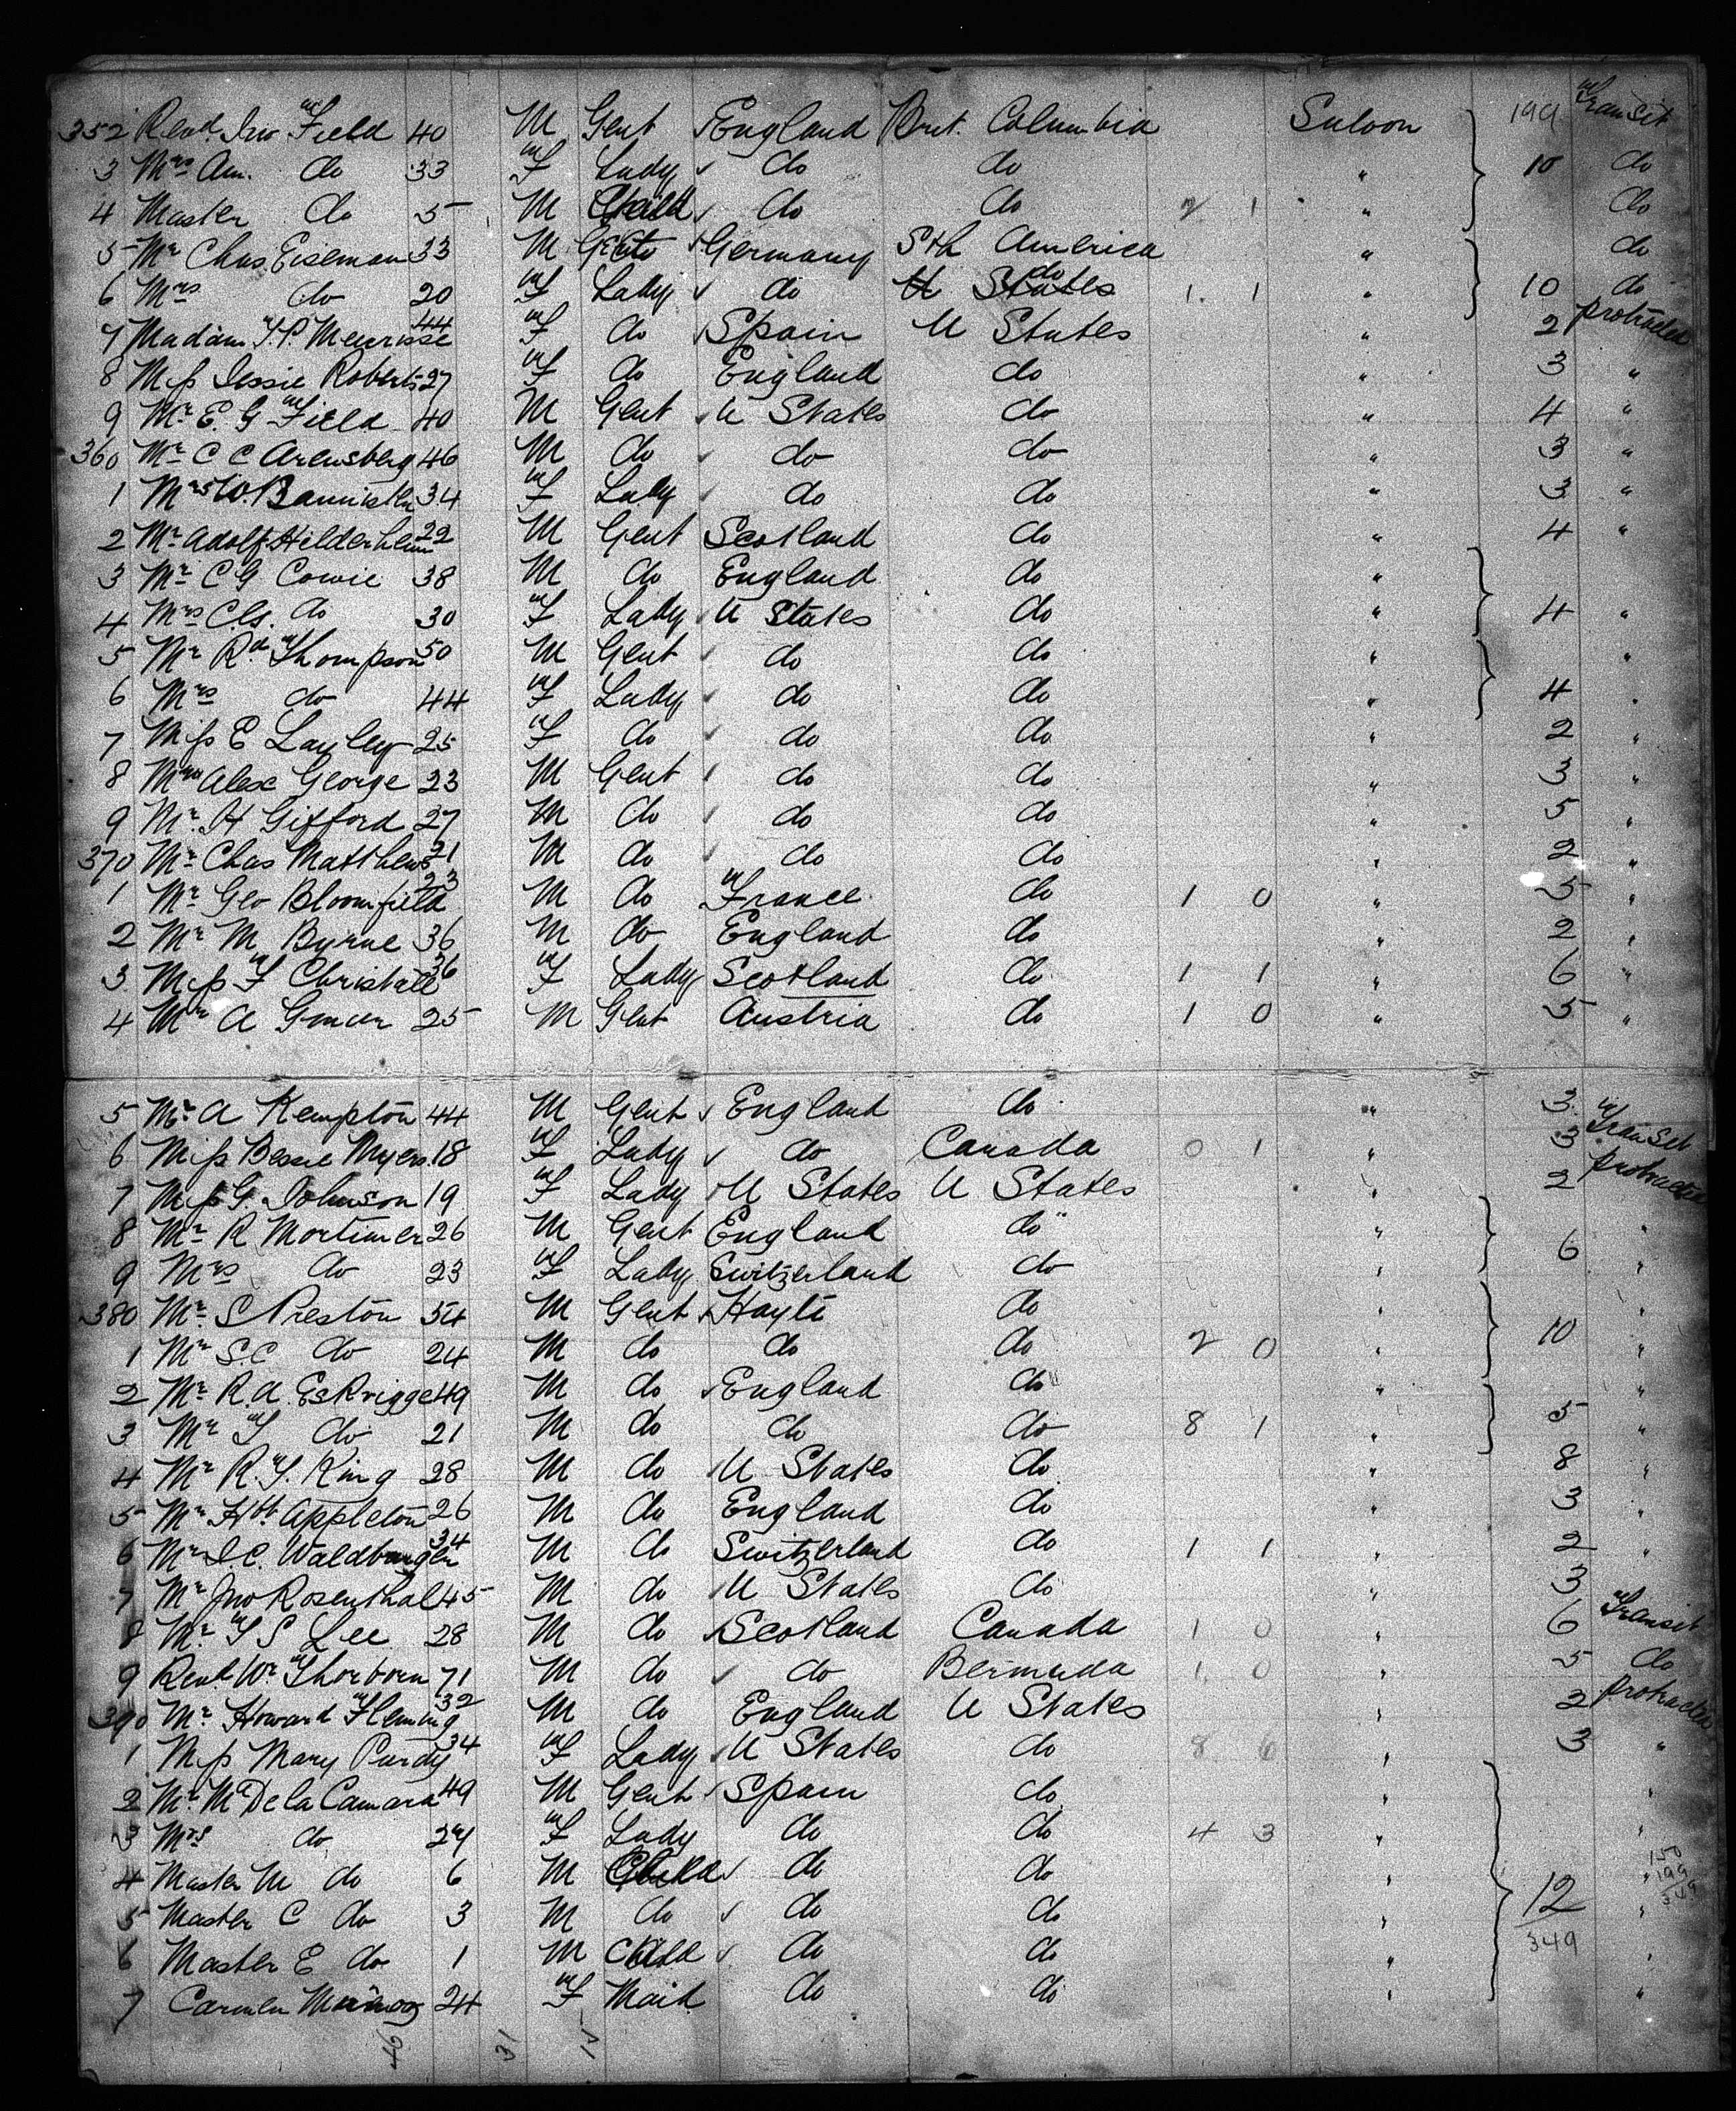 352 Revd. Jno Field 40 M Gent England Brit. Columbia Saloon 199 Transit
3 Mrs Am. do 33 F Lady do do " 10 do
4 Master do 5 M Child do do 2 1 " do
5 Mr Chas. Eiseman 33 M Gent Germany Sth America " do
6 Mrs do 20 F Lady do U States do 1 1 " 10 do
7 Madam T.P. Meurisse 44 F do Spain U States " 2 Protracted
8 Miss Jessie Roberts 27 F do England do " 3 "
9 Mr. E. G Field 40 M Gent U States do " 4 "
360 Mr C C Arensberg 46 M do do do " 3 "
1 Mrs W. Bannister 34 F Lady do do " 3 "
2 Mr Adolf Hilderheim 22 M Gent Scotland do " 4 "
3 Mr C G Cowie 38 M do England do "
4 Mrs C.G. do 30 F Lady U States do " 4 "
5 Mr Rd. Thompson 50 M Gent do do " "
6 Mrs do 44 F Lady do do " 4 "
7 Miss E Layley 25 F do do do " 2 "
8 Mr Alex George 23 M Gent do do " 3 "
9 Mr. H Gifford 27 M do do do " 5 "
370 Mr Chas Matthews 21 M do do do " 2 "
1 Mr Geo Bloomfield 23 M do France do 1 0 " 5 "
2 Mr M Byrne 36 M do England do " 2 "
3 Miss F Christall 36 F Lady Scotland do 1 1 " 6 "
4 Mr A 25 M Gent Austria do 1 0 " 5 "
5 Mr. A Kempton 44 M Gent England do " 3
6 Miss Bessie Myers 18 F Lady do Canada 0 1 " 3 Transit
7 Miss G. Johnson 19 F Lady U States U States " 2 Protracted
8 Mr R Mortimer 26 M Gent England do " "
9 Mrs do 23 F Lady Switzerland do " 6 "
380 Mr. S Preston 54 M Gent Hayti do " "
1 Mr S.C do 24 M do do do 2 0 " 10 "
2 Mr. R.A. Eskrigge 49 M do England do " "
3 Mr T do 21 M do do do 8 1 " 5 "
4 Mr R.T. King 28 M do U States do " 8 "
5 Mr Hbt. Appleton 26 M do England do " 3 "
6 Mr J.C. Waldburger 34 M do Switzerland do 1 1 " 2 "
7 Mr Jno Rosenthal 45 M do U States do " 3
8 Mr. T S Lee 28 M do Scotland Canada 1 0 " 6 Transit
9 Revd. Wm. Thorborn 71 M do do Bermuda 1 0 " 5 do
390 Mr. Howard Fleming 32 M do England U States " 2 Protracted
1 Miss Mary Purdy 34 F Lady U States do 8 6 " 3 "
2 Mr. M De la Camara 49 M Gent Spain do " "
3 Mrs do 27 F Lady do do 4 3 " "
4 Master M do 6 M Child do do " " 150
199
349
5 Master C do 3 M do do do " 12 "
6 Master E do 1 M Child do do " 349 "
7 Carmen 24 F Maid do do " "
31 15